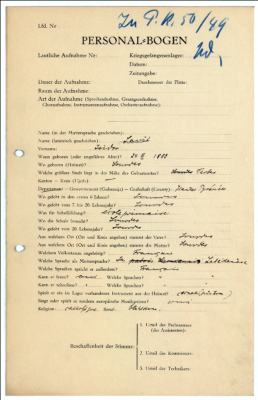 Zu P.K. 50/49
Lfd. Nr.
PERSONAL-BOGEN
Lautliche Aufnahme Nr:
Kriegsgefangenenlager:
Datum:
Zeitangabe:
Dauer der Aufnahme:
Durchmesser der Platte:
Raum der Aufnahme:
Art der Aufnahme (Sprechaufnahme, Gesangsaufnahme,
Choraufnahme, Instrumentenaufnahme, Orchesteraufnahme):
Name (in der Muttersprache geschrieben):
Name (lateinisch geschrieben):
Vorname: Isidor
Wann geboren (oder ungefähres Alter)?
Wo geboren (Heimat)? Lourdes
Welche größere Stadt liegt in der Nähe des Geburtsortes?
Kanton — Kreis (Ujedz) —
Departement — Gouvernement (Gubernija) — Grafschaft (County):
Wo gelebt in den ersten 6 Jahren? Lourdes
Wo gelebt vom 7. bis 20. Lebensjahr? Lourdes
Was für Schulbildung?
Wo die Schule besucht? Lourdes
Wo gelebt vom 20. Lebensjahr? Lourdes
Aus welchem Ort (Ort und Kreis angeben) stammt der Vater? Lourdes
Aus welchem Ort (Ort und Kreis angeben) stammt die Mutter? Lourdes
Welchem Volksstamm angehörig? Français
Welche Sprache als Muttersprache?
Welche Sprachen spricht er außerdem? Français
Kann er lesen? Welche Sprachen?
Kann er schreiben? Welche Sprachen?
Spielt er ein im Lager vorhandenes Instrument aus der Heimat?
Singt oder spielt er modern europäische Musikweisen?
Religion: Beruf:
Beschaffenheit der Stimme:
1. Urteil des Fachmannes
(des Assistenten):
2. Urteil des Kommissars:
3. Urteil des Technikers: